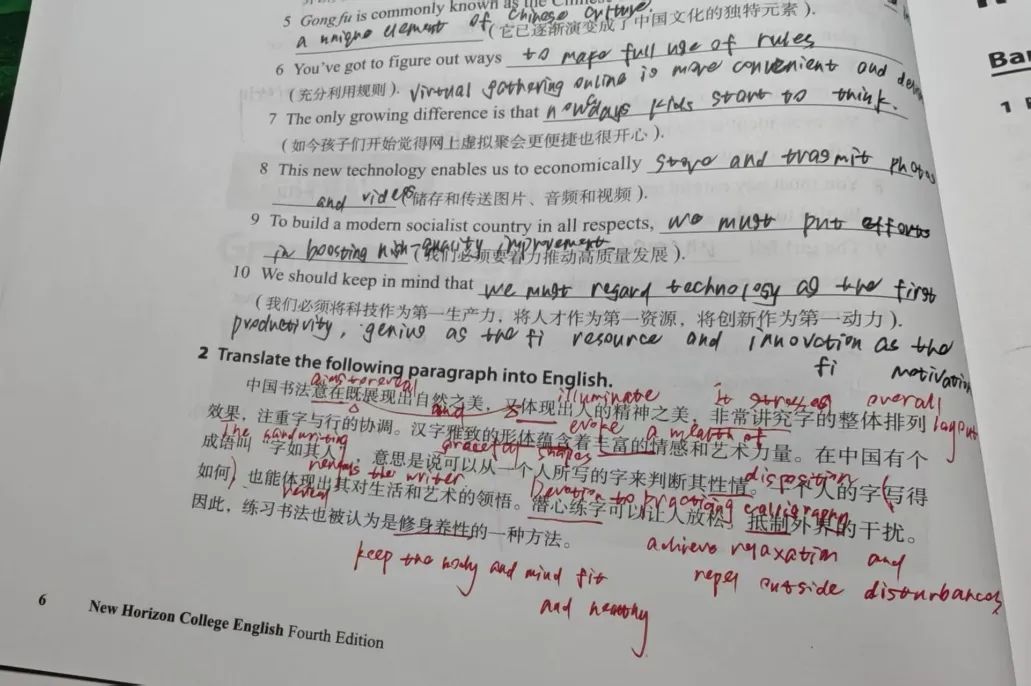 5 Gong fu is commonly known as the Chinese
a unique element of Chinese culture. (它已逐渐演变成了中国文化的独特元素).
6 You've got to figure out ways to make full use of rules
(充分利用规则). virtual gathering online is more convenient and
7 The only growing difference is that nowadays kids start to think.
(如今孩子们开始觉得网上虚拟聚会更便捷也很开心).
8 This new technology enables us to economically store and trasmit photos
and videos 储存和传送图片、音频和视频).
9 To build a modern socialist country in all respects, we must put efforts
in boosting high-quality improvement (我们必须要着力推动高质量发展).
10 We should keep in mind that we must regard technology as the first
(我们必须将科技作为第一生产力，将人才作为第一资源，将创新作为第一动力).
productivity, genius as the fi resource and innovation as the
fi motivation
Bar
1
2 Translate the following paragraph into English.
aims to reveal illuminate It stresses overall
中国书法意在既展现出自然之美，又体现出人的精神之美，非常讲究字的整体排列
and evoke a wealth of layout
效果，注重字与行的协调。汉字雅致的形体蕴含着丰富的情感和艺术力量。在中国有个
The handwriting graceful shapes
成语叫“字如其人”，意思是说可以从一个人所写的字来判断其性情。一个人的字写得
reveals the writer disposition
如何，也能体现出其对生活和艺术的领悟。潜心练字可以让人放松，抵制外界的干扰。
reveal Devotion to practicing calligraphy
因此，练习书法也被认为是修身养性的一种方法。
keep the body and mind fit
and healthy
achieve relaxation and
repel outside disturbances
6 New Horizon College English Fourth Edition